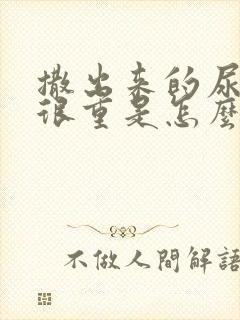 撒出来的尿
很重是怎麼
不做人間解語